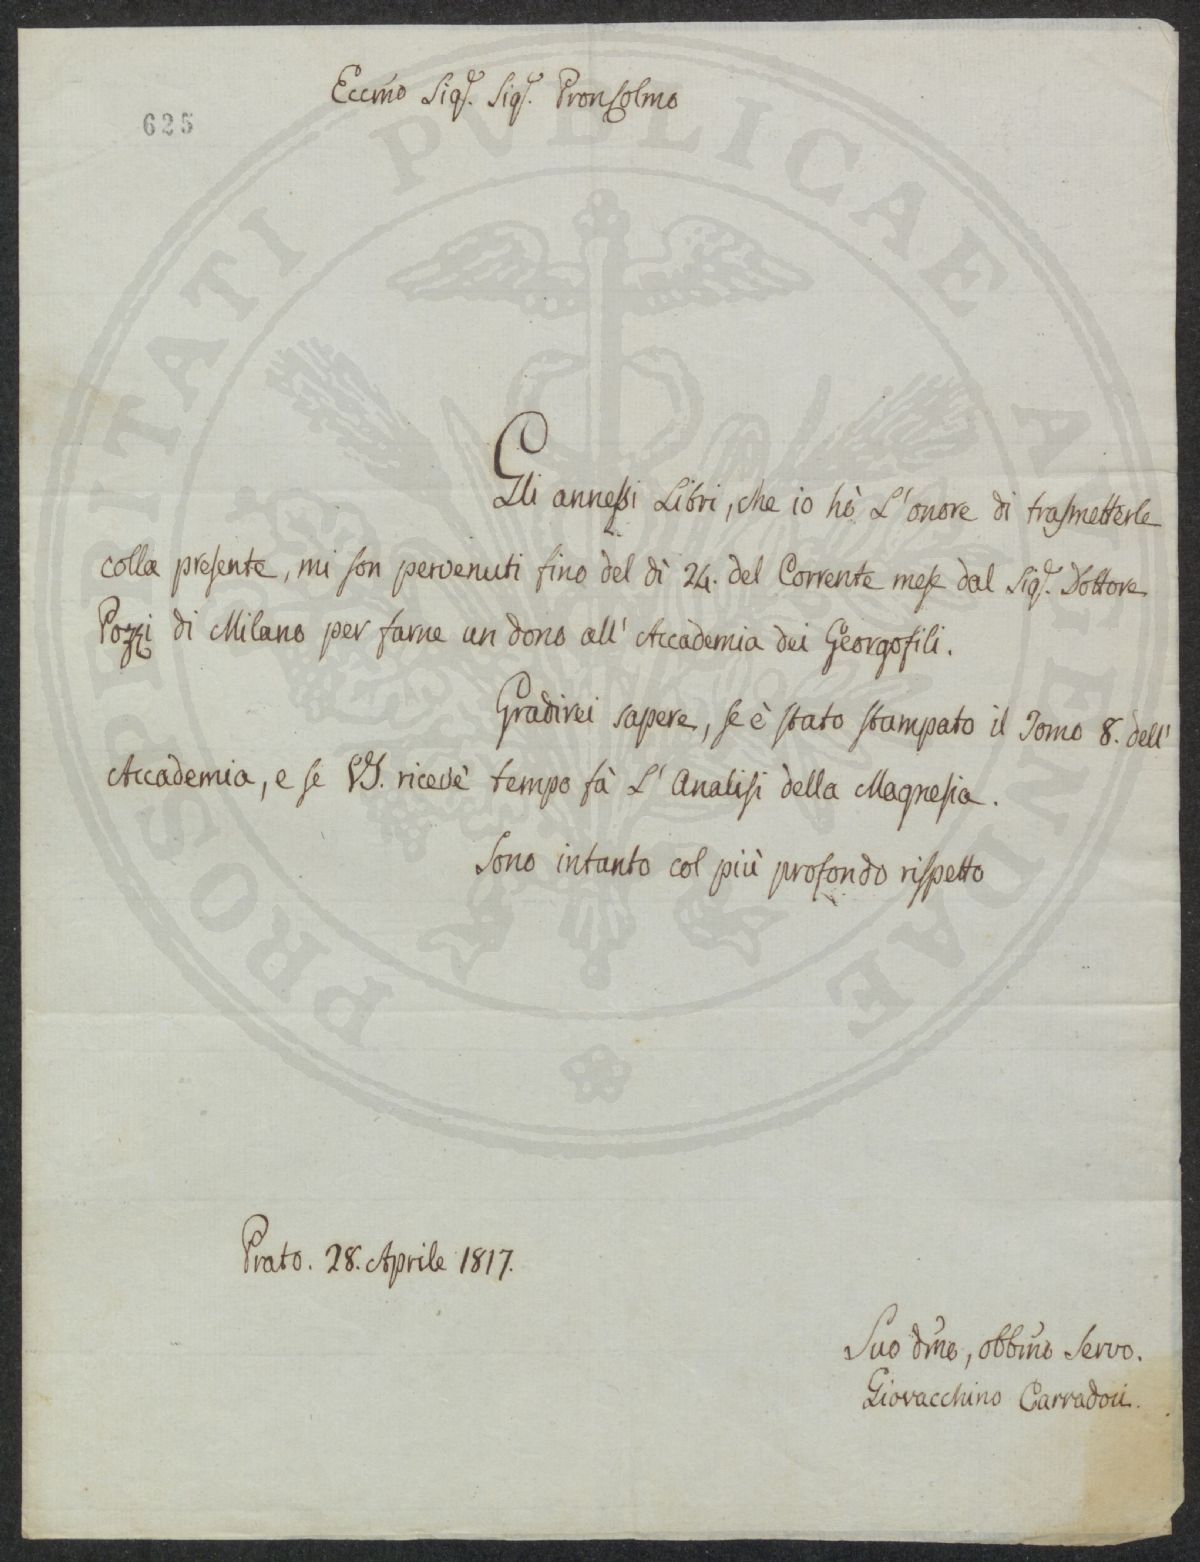 Eccmo Sigr. Sigr. Pron Colmo
625
Gli annessi Libri, che io hò L'onore di trasmetterle
colla presente, mi son pervenuti fino del dì 24. del Corrente mese dal Sigr. Dottore
Pozzi di Milano per farne un dono all' Accademia dei Georgofili.
Gradirei sapere, se è stato stampato il Tomo 8. dell'
Accademia, e se VS. ricevè tempo fà L' Analisi della Magnesia.
Sono intanto col più profondo rispetto
Prato. 28. Aprile 1817.
Suo dmo, obbmo Servo.
Giovacchino Carradori.
PROSPERITATI PVBLICAE AVGENDAE